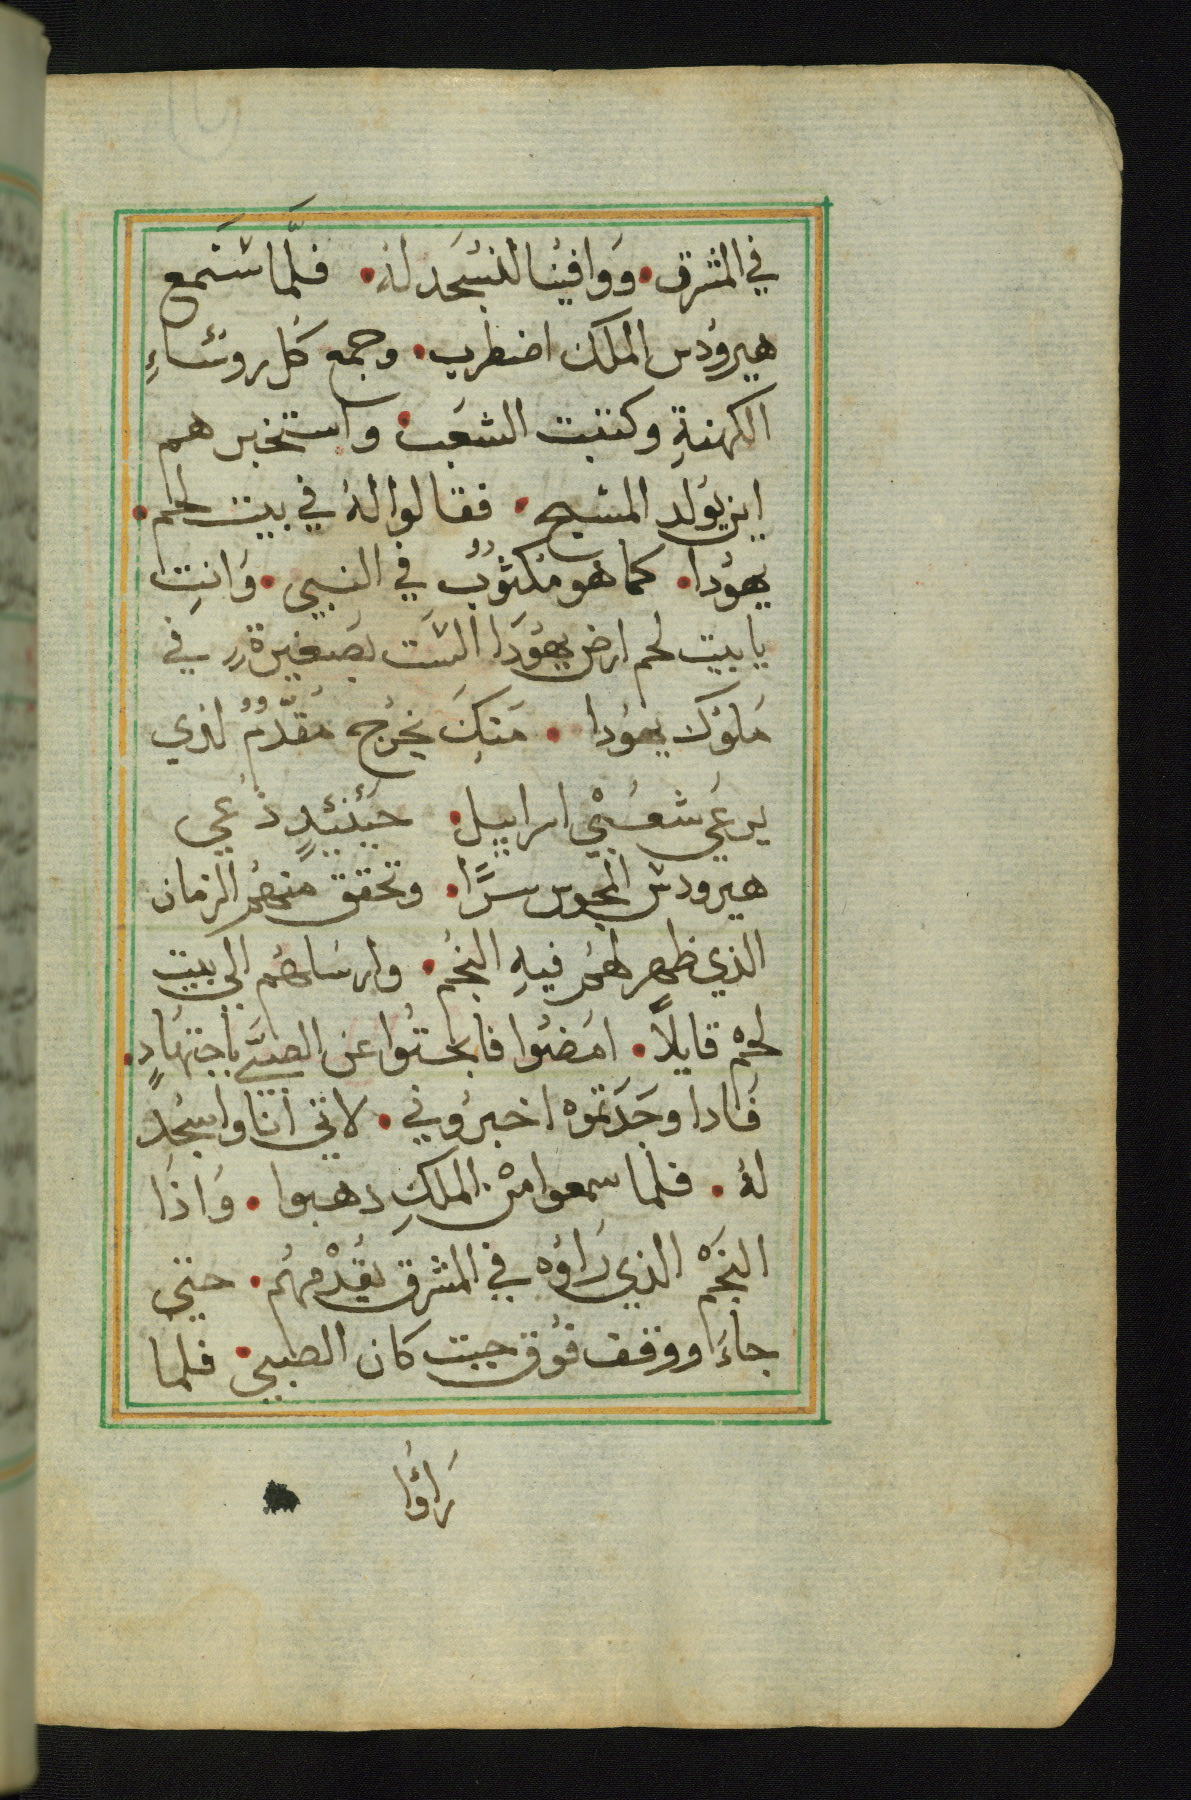 في المشرق • ووافينا لنسجد له • فلما سمع
هيرودس الملك اضطرب • وجمع كل روساءِ
الكهنةِ وكتبت الشعب • واستخبرهم
اين يولد المسيح • فقالوا له في بيت لحم •
يهودا • كما هو مكتوبٌ في النبي • وانتِ
يا بيت لحم ارض يهودا الست بصغيرةٍ في
ملوك يهودا • منكِ يخرج مقدمٌ الذي
يرعي شعبي اسراييل • حينئيذٍ دعي
هيرودس المجوس سرًّا • وتحقق منهم الزمان
الذي ظهر لهم فيهِ النجم • وارسلهم الي بيت
لحم قايلاً • امضوا فابحتوا عن الصبي باجتهادٍ •
فادا وجدتموه اخبروني • لاني انا واسجد
له • فلما سمعوا من الملكِ دهبوا • واذا
النجم الذي راوه في المشرق يقدمهم • حتي
جاءَ ووقف فوق حيت كان الصبي • فلما
راوا